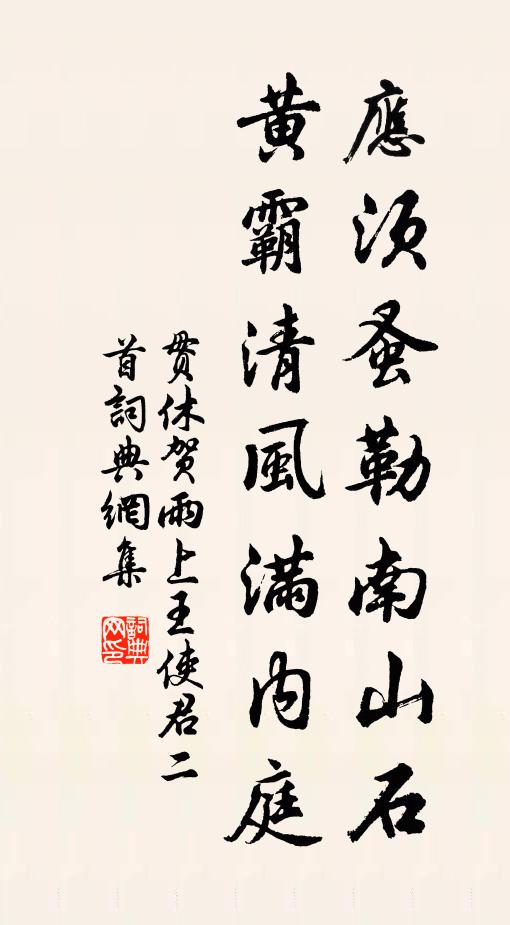 應須蚤勒南山石
黃霸清風滿內庭
貫休賀雨上王使君二
首詞典網集
詞典
网印